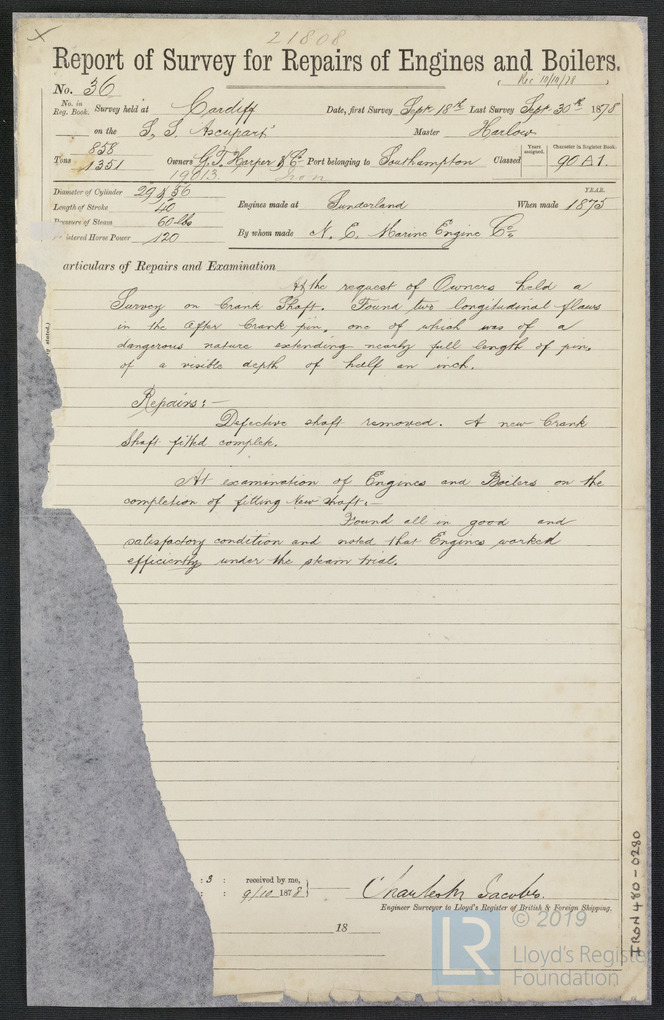 21808
Report of Survey for Repairs of Engines and Boilers.
(Rec 10/10/78)
No. 36
No. in Reg. Book. Survey held at Cardiff Date, first Survey Sept 18th Last Survey Sept 30th 1878
on the S.S. Ascupart Master Harlow
Tons 858 1351 Owners G.T. Harper & Co. Port belonging to Southampton Classed Years assigned. Character in Register Book. 90 A1.
19013. Iron
Diameter of Cylinder 29 & 56
Length of Stroke 40
Pressure of Steam 60 lbs
istered Horse Power 120
Engines made at Sunderland When made YEAR. 1875
By whom made N. E. Marine Engine Co.
articulars of Repairs and Examination
At the request of Owners held a
Survey on Crank Shaft. Found two longitudinal flaws
in the After Crank pin, one of which was of a
dangerous nature extending nearly full length of pin,
of a visible depth of half an inch.
Repairs:-
Defective shaft removed. A new Crank
Shaft fitted complete.
At examination of Engines and Boilers on the
completion of fitting New Shaft:-
Found all in good and
satisfactory condition and noted that Engines worked
efficiently under the steam trial.
: 3 : received by me,
: : 9/10 1878
Engineer Surveyor to Lloyd's Register of British & Foreign Shipping.
18
IRON 480-0280
LR
© 2019
Lloyd's Register
Foundation